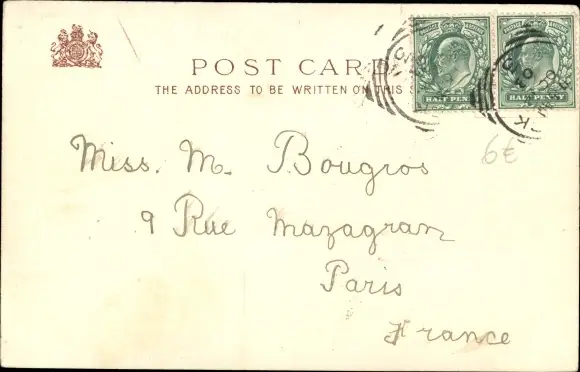 POST CARD
THE ADDRESS TO BE WRITTEN ON THIS
HALF PENNY
HALF PENNY
6€
Miss. M. Bougros
9 Rue Mazagran
Paris
France